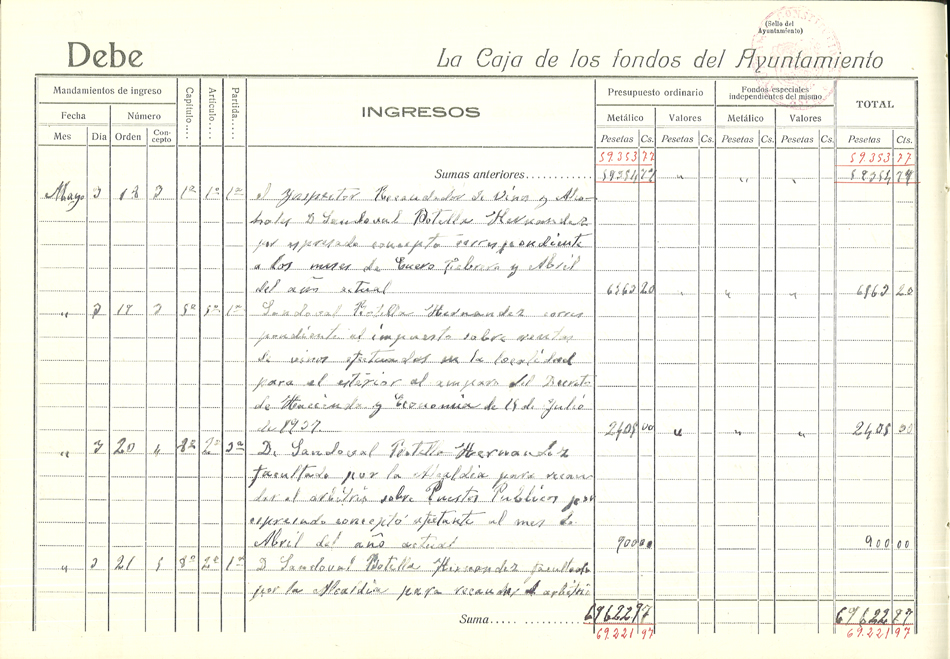 (Sello del
Ayuntamiento)
Debe La Caja de los fondos del Ayuntamiento
Mandamientos de ingreso Capítulo.... Artículo.... Partida.... INGRESOS Presupuesto ordinario Fondos especiales independientes del mismo TOTAL
Fecha Número Metálico Valores Metálico Valores
Mes Día Orden Concepto Pesetas Cs. Pesetas Cs. Pesetas Cs. Pesetas Cs. Pesetas Cts.
59.353 77 59.353 77
Sumas anteriores............ 59354 77 " " " 59354 77
Mayo 3 18 3 1º 1º 1º Recaudador de vinos y Alco-
holes D Sandoval Botella Hernandez
por expresado concepto correspondiente
a los meses de Enero Febrero y Abril
del año actual 6563 20 " " " 6563 20
" 3 19 3 1ª Sandoval Botella Hernandez corres
pondiente al impuesto sobre ventas
de vinos efectuados en la localidad
para el exterior al amparo del Decreto
de Hacienda y Economia de 14 de Julio
de 1937. 2405 00 " " " 2405 00
" 3 20 4 8º 2º 3ª D. Sandoval Botella Hernandez
facultado por la Alcaldia para recau-
dar el arbitrio sobre Puestos Publicos por
expresado concepto al mes de
Abril del año actual 900 00 900 00
" 3 21 5 8º 2º 1ª D Sandoval Botella Hernandez facultado
por la Alcaldia para recaudar el arbitrio
Suma..... .......... 69622 97 69622 97
69.221 97 69.221 97